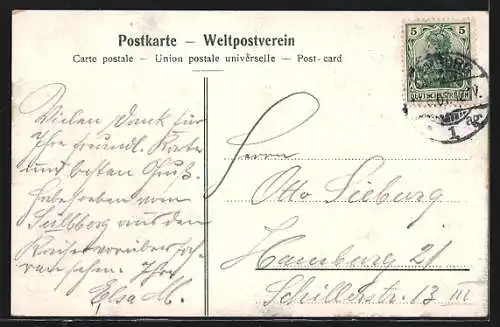 Postkarte – Weltpostverein
Carte postale – Union postale universelle – Post-card
5 5
DEUTSCHES REICH
1 ag.
Vielen Dank für
Ihre freundl. Karte
und besten Gruß.
Habe soeben vom
Süllberg aus den
Kaiser vorüberfah-
ren sehen. Ihre
Elsa M.
Herrn
Otto Sieburg
Hamburg 21
Schillerstr. 13 III